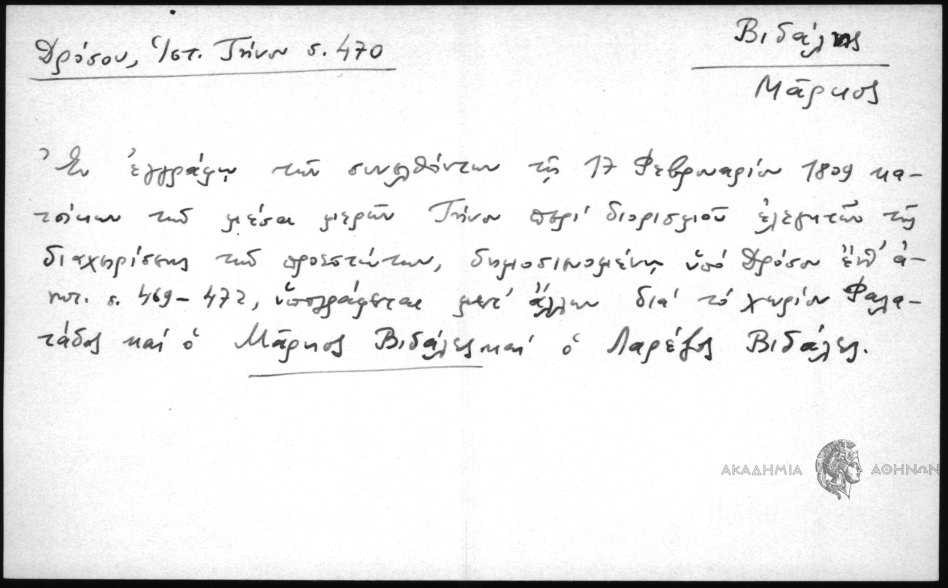 Δρόσου, Ἱστ. Τήνου σ. 470
Βιδάλης
Μᾶρκος
Ἐν ἐγγράφῳ τῶν συνελθόντων τῇ 17 Φεβρουαρίου 1809 κα-
τοίκων τῶν μέσα μερῶν Τήνου περί διορισμοῦ ἐλεγκτῶν τῆς
διαχειρίσεως τῶν προεστώτων, δημοσιευομένῳ ὑπό Δρόσου ἔνθ' ἀ-
νωτ. σ. 469-472, ὑπογράφεται μετ' ἄλλων διά τό χωρίον Φαλα-
τάδος καί ὁ Μᾶρκος Βιδάλες καί ὁ Λαρέζος Βιδάλες.
ΑΚΑΔΗΜΙΑ ΑΘΗΝΩΝ